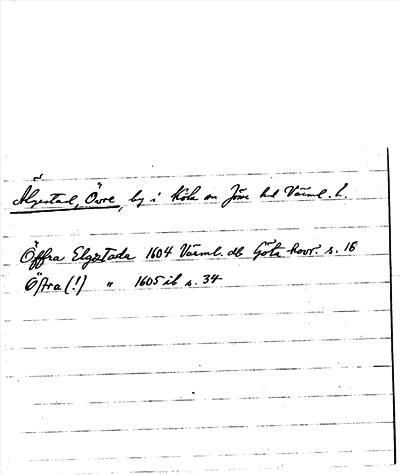 Älgestad, Övre, by i Köla sn Jösse hd Värml. l.
Öffra Elgestada 1604 Värml. db Göta hovr. s. 16
Öfra (!) " 1605 ib s. 34